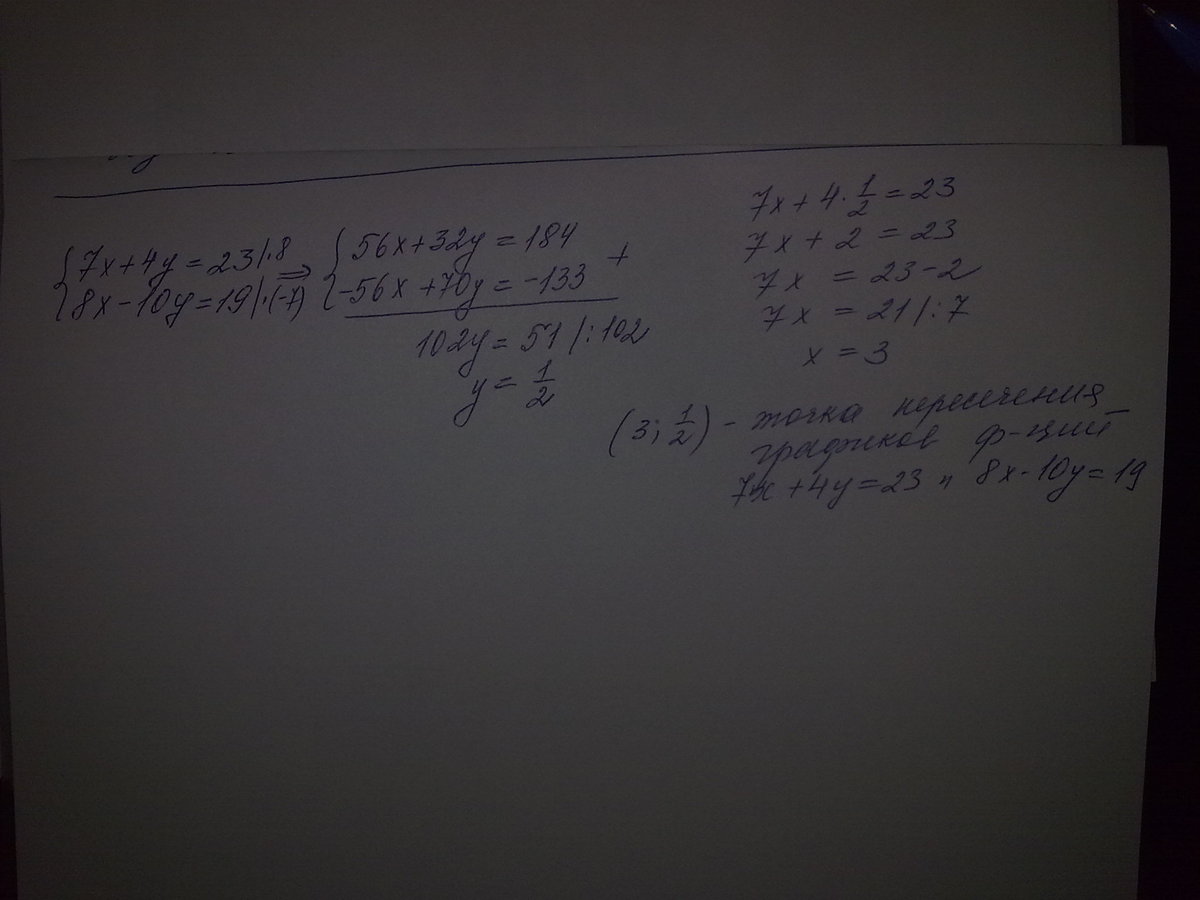 {7x+4y=23|·8
{8x-10y=19|·(-7)
⇒
{56x+32y=184
{-56x+70y=-133
+
102y=51|:102
y=1/2
7x+4·1/2=23
7x+2=23
7x=23-2
7x=21|:7
x=3
(3;1/2) - точка пересечения
графиков ф-ций
7x+4y=23 и 8x-10y=19